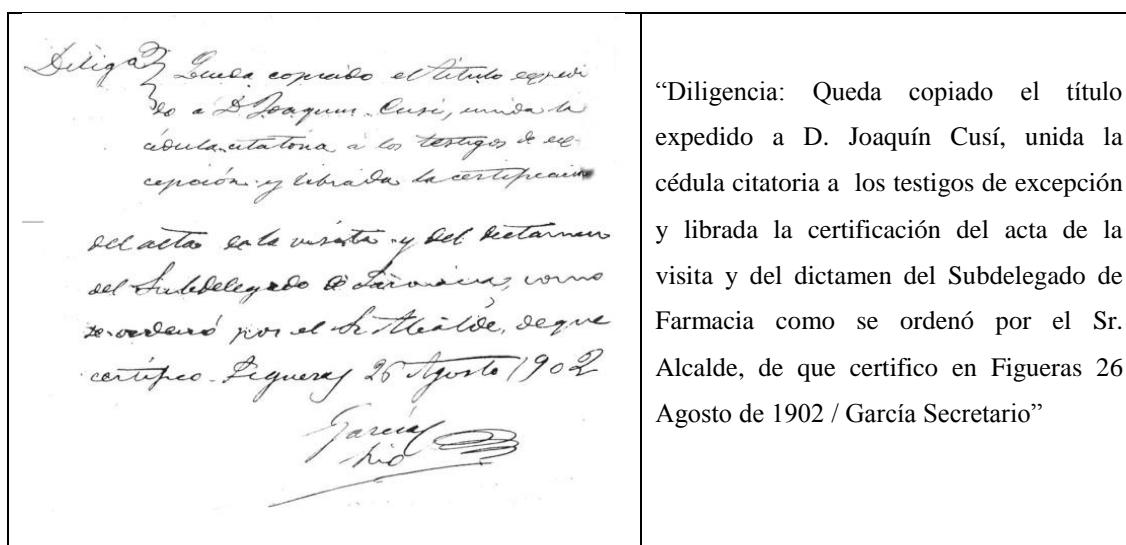 Diligª Queda copiado el título expedi
do a D. Joaquin Cusi, unida la
cédula citatoria a los testigos de ex-
cepción y librada la certificacion
del acta de la visita y del dictamen
del Subdelegado de Farmacia, como
se ordenó por el Sr Alcalde, de que
certifico. Figueras 26 Agosto 1902
García
Srio
“Diligencia: Queda copiado el título
expedido a D. Joaquín Cusí, unida la
cédula citatoria a los testigos de excepción
y librada la certificación del acta de la
visita y del dictamen del Subdelegado de
Farmacia como se ordenó por el Sr.
Alcalde, de que certifico en Figueras 26
Agosto de 1902 / García Secretario”